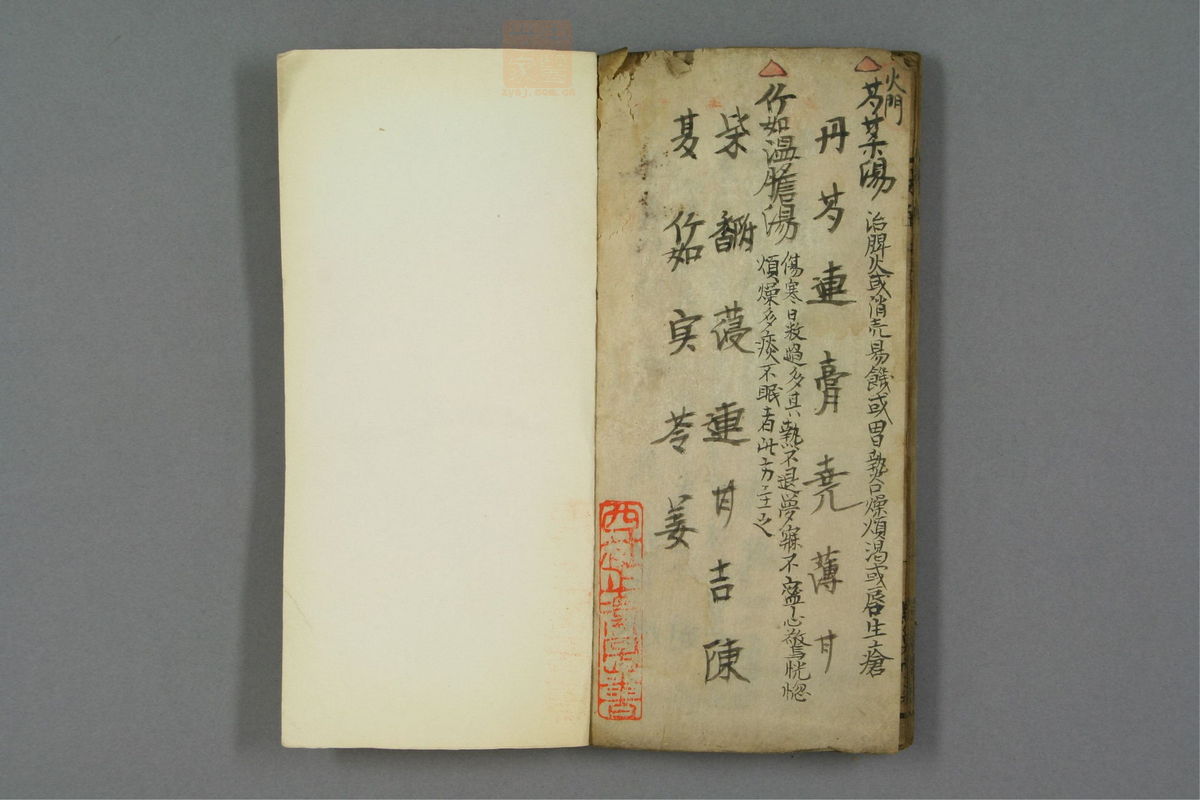 火門
芍薬湯 治脾火或消売易饑或胃熱口燥煩渇或唇生瘡
丹 芍 連 膏 売 薄 甘
竹如温膽湯 傷寒日数過多其熱不退夢寐不寍心驚恍惚
煩燥多痰不眠者此方主之
柴 香附 葠 連 甘 吉 陳
夏 竹如 实 苓 姜
zysj.com.cn